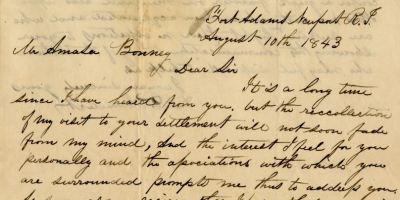 Fort Adams Newport R.I.
August 10th 1843
Mr Amasa Bonney
Dear Sir
It is a long time
since I have heard from you, but the reccollection
of my visit to your settlement will not soon fade
from my mind, and the interest I feel for you
personally and the associations with which you
are surrounded prompts me thus to address you.